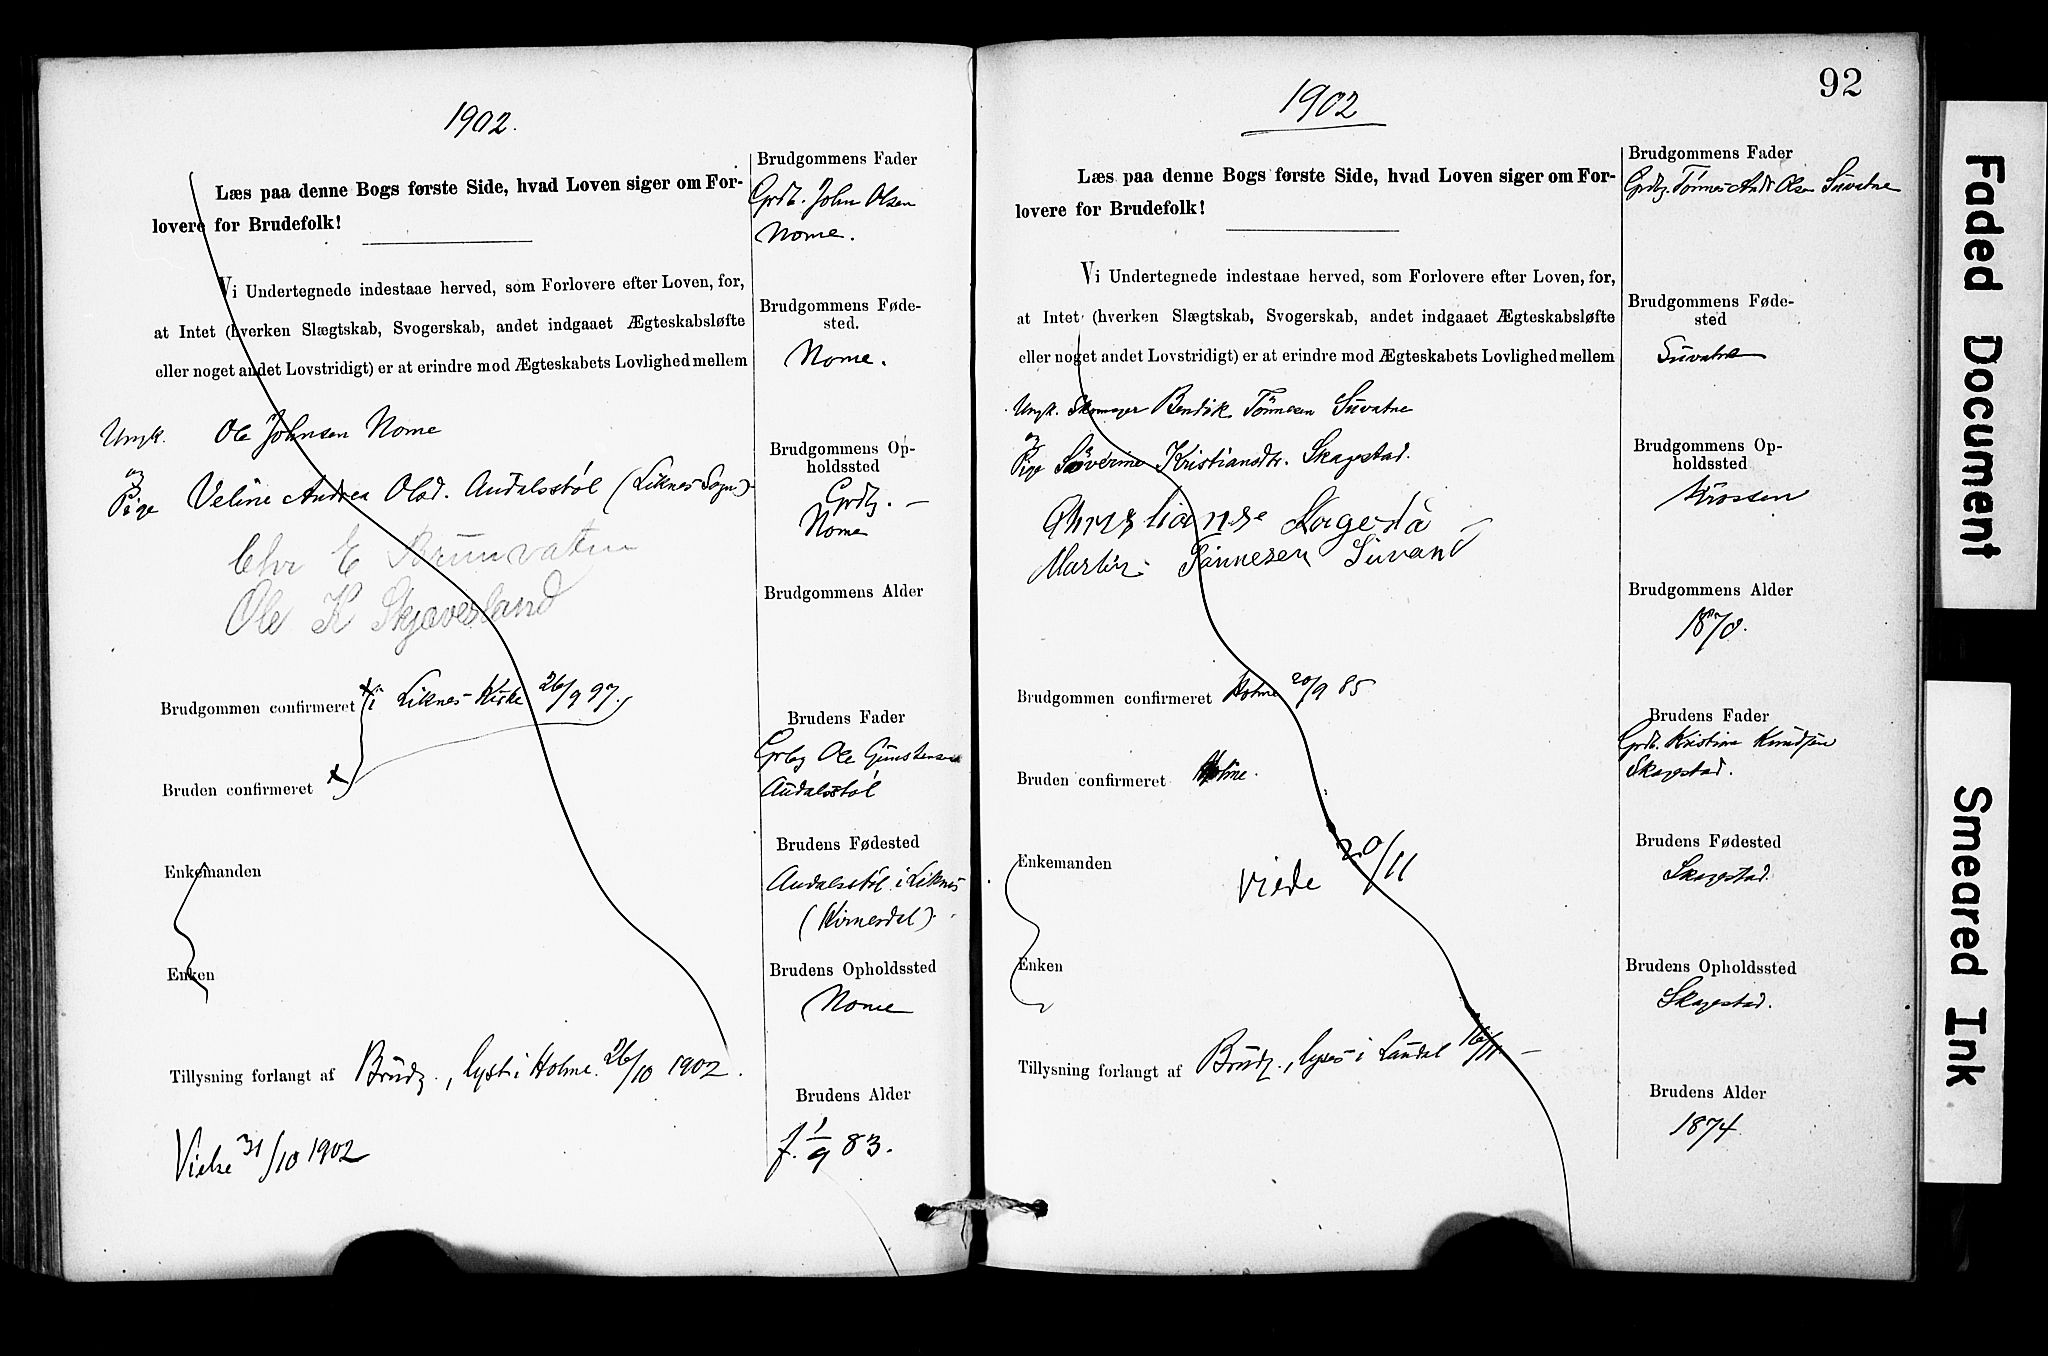 1902.
Læs paa denne Bogs første Side, hvad Loven siger om For-
lovere for Brudefolk!
Vi Undertegnede indestaae herved, som Forlovere efter Loven, for,
at Intet (hverken Slægtskab, Svogerskab, andet indgaaet Ægteskabsløfte
eller noget andet Lovstridigt) er at erindre mod Ægteskabets Lovlighed mellem
Ungk. Ole Johnsen Nome
og
Pige Veline Andrea Olsd. Audalsstøl (Liknes Sogn)
Chr E Brunvatne
Ole K Skjæveland
Brudgommen confirmeret i Liknes Kirke 26/9 97.
Bruden confirmeret
Enkemanden
Enken
Tillysning forlangt af Brudg., lyst i Holme 26/10 1902.
Vielse 31/10 1902
Brudgommens Fader
Grdb. John Olsen
Nome.
Brudgommens Føde-
sted.
Nome.
Brudgommens Op-
holdssted
Grdbg. –
Nome
Brudgommens Alder
Brudens Fader
Grbg Ole Gunstensen
Audalsstøl
Brudens Fødested
Audalsstøl i Liknes
Brudens Opholdssted
Nome
Brudens Alder
f. 1/9 83.
92
1902
Læs paa denne Bogs første Side, hvad Loven siger om For-
lovere for Brudefolk!
Vi Undertegnede indestaae herved, som Forlovere efter Loven, for,
at Intet (hverken Slægtskab, Svogerskab, andet indgaaet Ægteskabsløfte
eller noget andet Lovstridigt) er at erindre mod Ægteskabets Lovlighed mellem
Ungk. Skomager Bendik Tønnesen Suvatne
og
Pige Søverine Kristiansdtr. Skagestad.
Martin Tønnesen
Brudgommen confirmeret Holme 20/9 85
Bruden confirmeret Holme.
Enkemanden
viede 20/11
Enken
Tillysning forlangt af Brudg., lyses i Laudal 16/11 –
Brudgommens Fader
Grdbg. Tønnes Andr Olsen Suvatne
Brudgommens Føde-
sted
Suvatne
Brudgommens Op-
holdssted
Krossen
Brudgommens Alder
1870.
Brudens Fader
Grdb. Kristian Knudsen
Skagestad.
Brudens Fødested
Skagestad.
Brudens Opholdssted
Skagestad.
Brudens Alder
1874
Faded Document
Smeared Ink